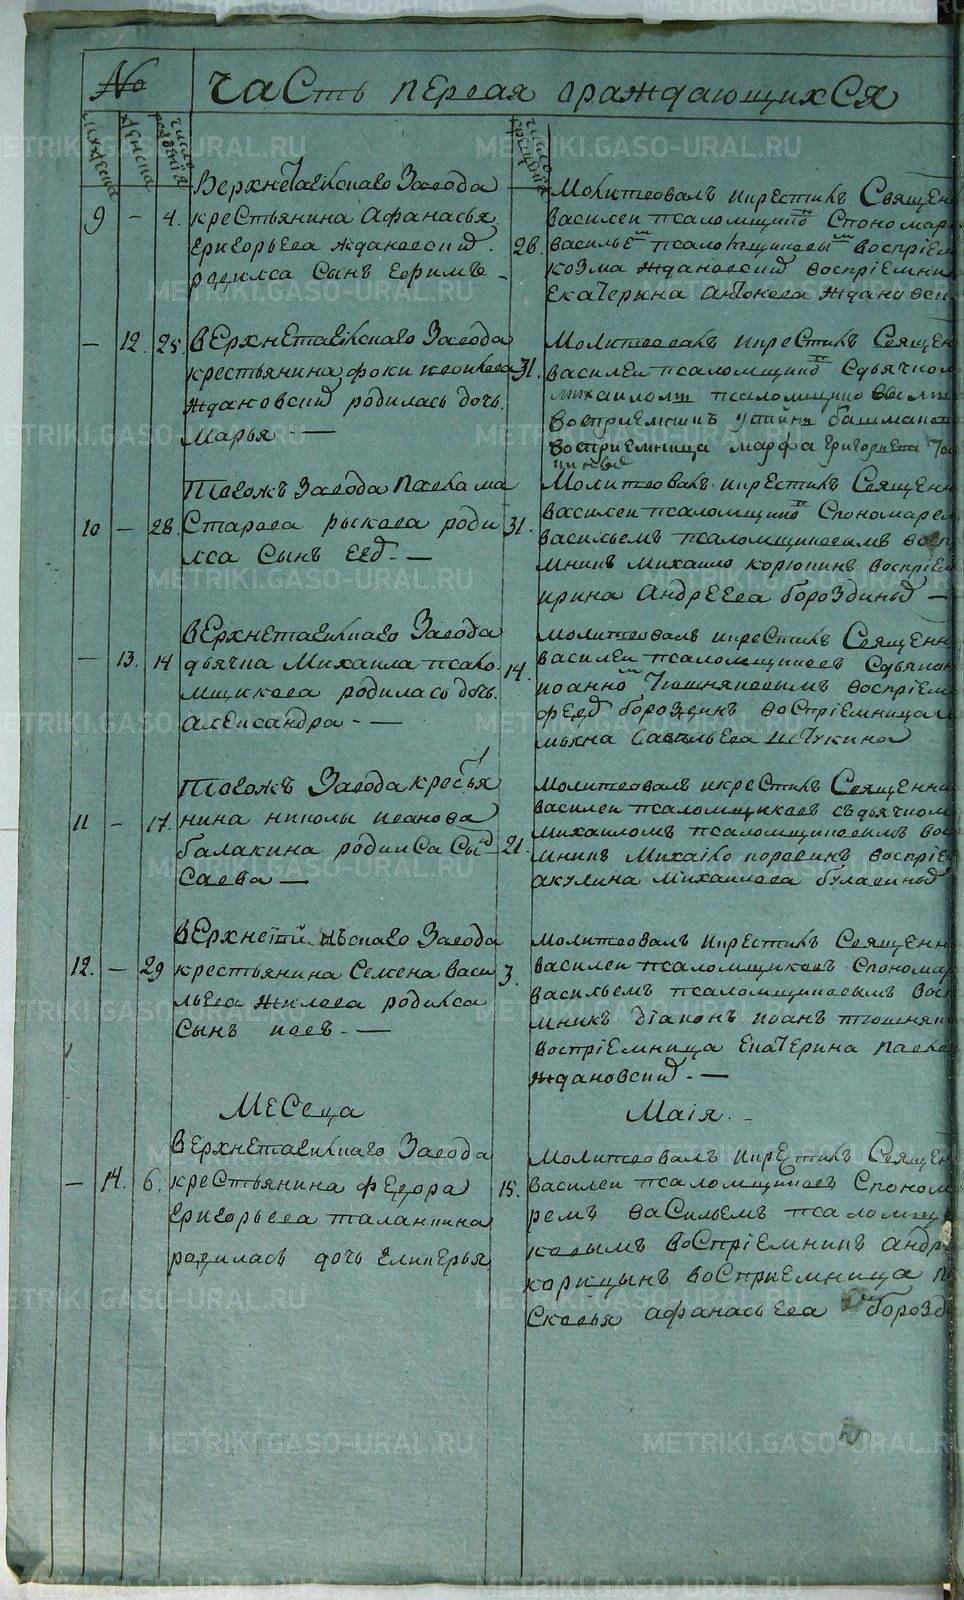 № часть первая ораждающихся
мужеска женска число рождения число крещения
Верхнетагилскаго Завода
9 – 4. крестьянина Афанасья
Григорьева Ждановских
родилса Сынъ Ефимъ –
26. Молитвовалъ икрестилъ Священ
Василеи псаломщико Спономар
Васильем псаломщиковым восприем
козма Ждановских восприемни
Екатерина Антонова Ждановски
– 12. 25. Верхнетагилскаго Завода
крестьянина фоки
Ждановских родилась дочь
Марья –
31. Молитвовалъ икрестилъ Священ
Василеи псаломщико Сдьячком
михаилом псаломщико
восприемникъ башма
восприемница марфа Григорьева
10 – 28. Тогожъ Завода Павла ма
Старова рыкова роди
лса Сынъ –
31. Молитвовалъ икрестилъ Священн
василеи псаломщико Спономарем
васильемъ псаломщиковымъ восп
мникъ михаило корюкинъ восприем
ирина Андреева бороздиных –
– 13. 14 Верхнетагилскаго Завода
дьячка Михаила псало
мщикова родилась дочь
александра – –
14. Молитвовалъ икрестилъ Священн
василеи псаломщиковъ Сдьякон
иоанном Тюшняковымъ восприем
федор бороздинъ восприемница
мьяна Савельева Щукина
11 – 17. Тогожъ Завода крестья
нина николы иванова
балакина родилса Сын
Савва –
21. Молитвовалъ икрестилъ Священни
василеи псаломщиковъ съдьячком
михаиломъ псаломщиковымъ вос
мникъ Михаило коровинъ восприе
акулина михаилова булавиных
12. – 29 Верхне Завода
крестьянина Семена Васи
льева Жилова родилса
Сынъ иовъ. –
3. Молитвовалъ икрестилъ Священн
василеи псаломщиковъ Спономар
васильемъ псаломщиковымъ вос
мникъ діаконъ иоанъ тюшняк
восприемница екатерина павло
Ждановских. –
Месеца Маія. –
– 14. 6. Верхнетагилскаго Завода
крестьянина федора
Григорьева таланкина
родилась дочь еликерья
15. Молитвовалъ икрестилъ Священ
василеи псаломщиковъ Споном
ремъ васильемъ псаломщи
ковымъ восприемникъ андр
корицынъ восприемница п
сковья афанасьева борозд
METRIKI.GASO-URAL.RU